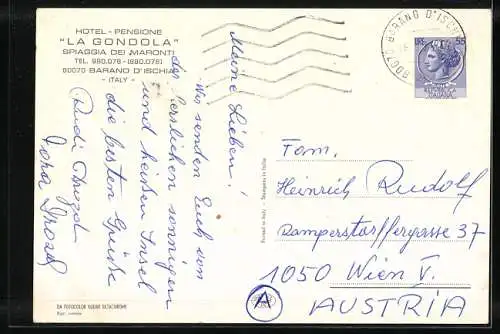 HOTEL - PENSIONE
"LA GONDOLA"
SPIAGGIA DEI MARONTI
TEL. 990.076 - (990.078)
80070 BARANO D'ISCHIA
- ITALY -
Meine Lieben!
Wir senden Euch von
der herrlichen sonnigen
und heißen Insel
die besten Grüße
Rudi Drozd
Dora Drozd
80070 BARANO D'ISCHIA
55
Printed in Italy - Stampato in Italia
Fam.
Heinrich Rudolf
Ramperstorffergasse 37
1050 Wien V.
AUSTRIA
A
DA FOTOCOLOR KODAK EKTACHROME